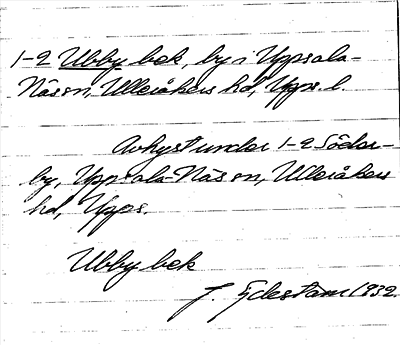 1-2 Ubby bek, by i Uppsala-
Näs sn, Ulleråkers hd, Upps. l.
Avhyst under 1-2 Söder-
by, Uppsala-Näs sn, Ulleråkers
hd, Upps.
Ubby bek
J. Edestam 1932.